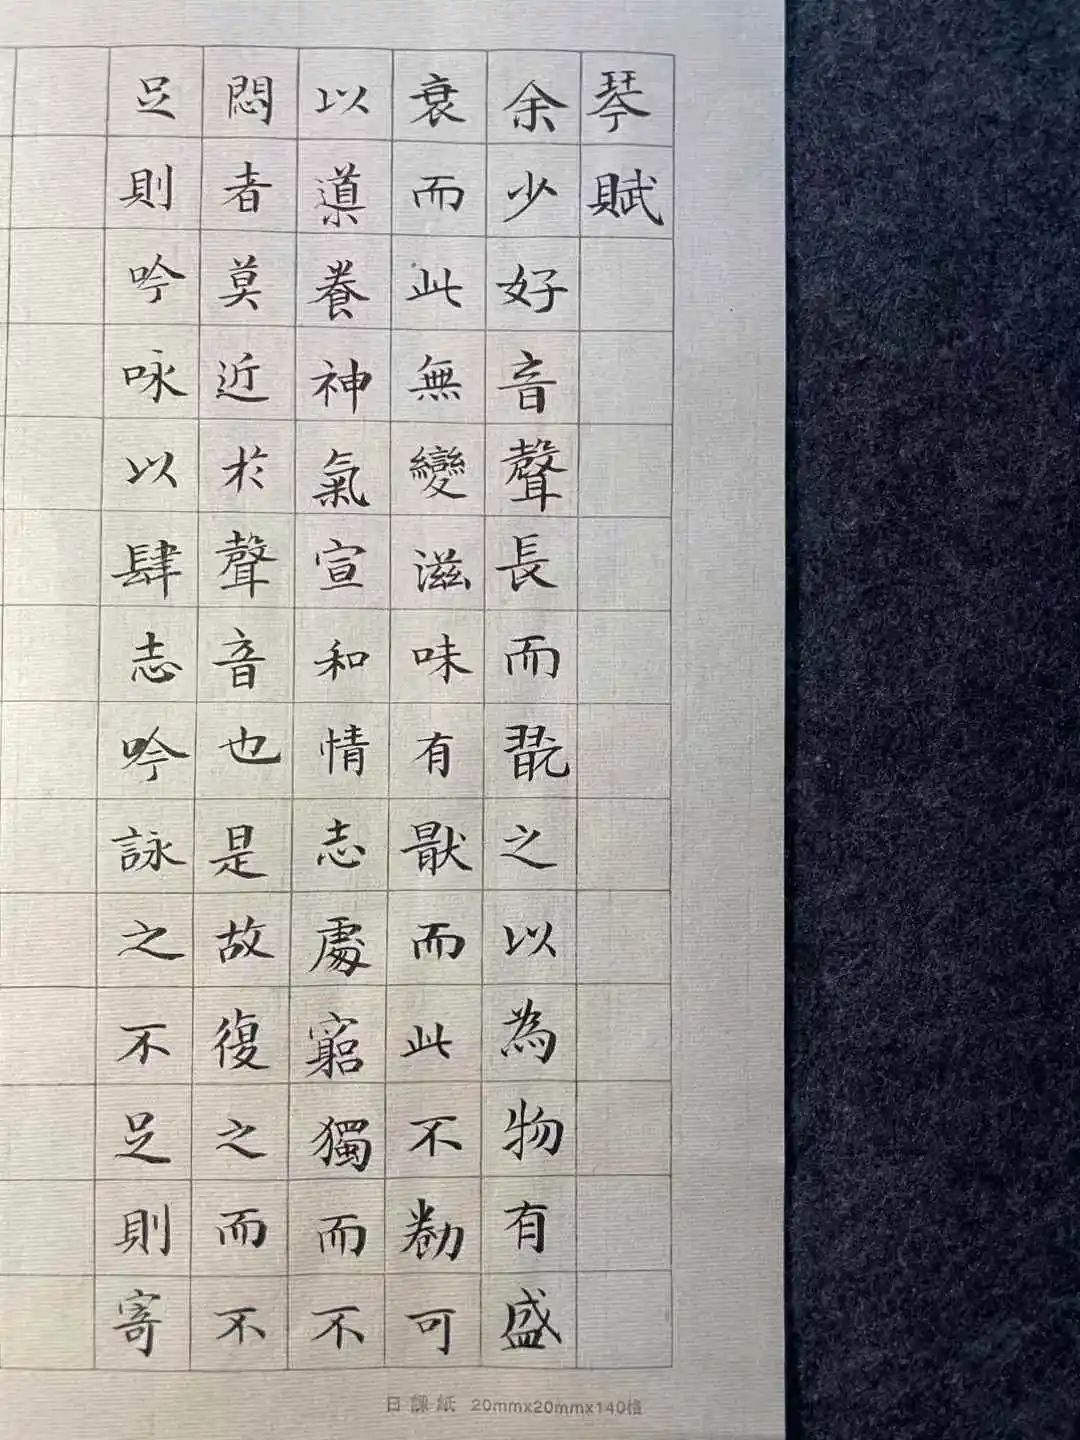 琴賦
余少好音聲長而翫之以為物有盛
衰而此無變滋味有猒而此不勌可
以導養神氣宣和情志處窮獨而不
悶者莫近於聲音也是故復之而不
足則吟咏以肆志吟詠之不足則寄
日課紙 20mmx20mmx140格